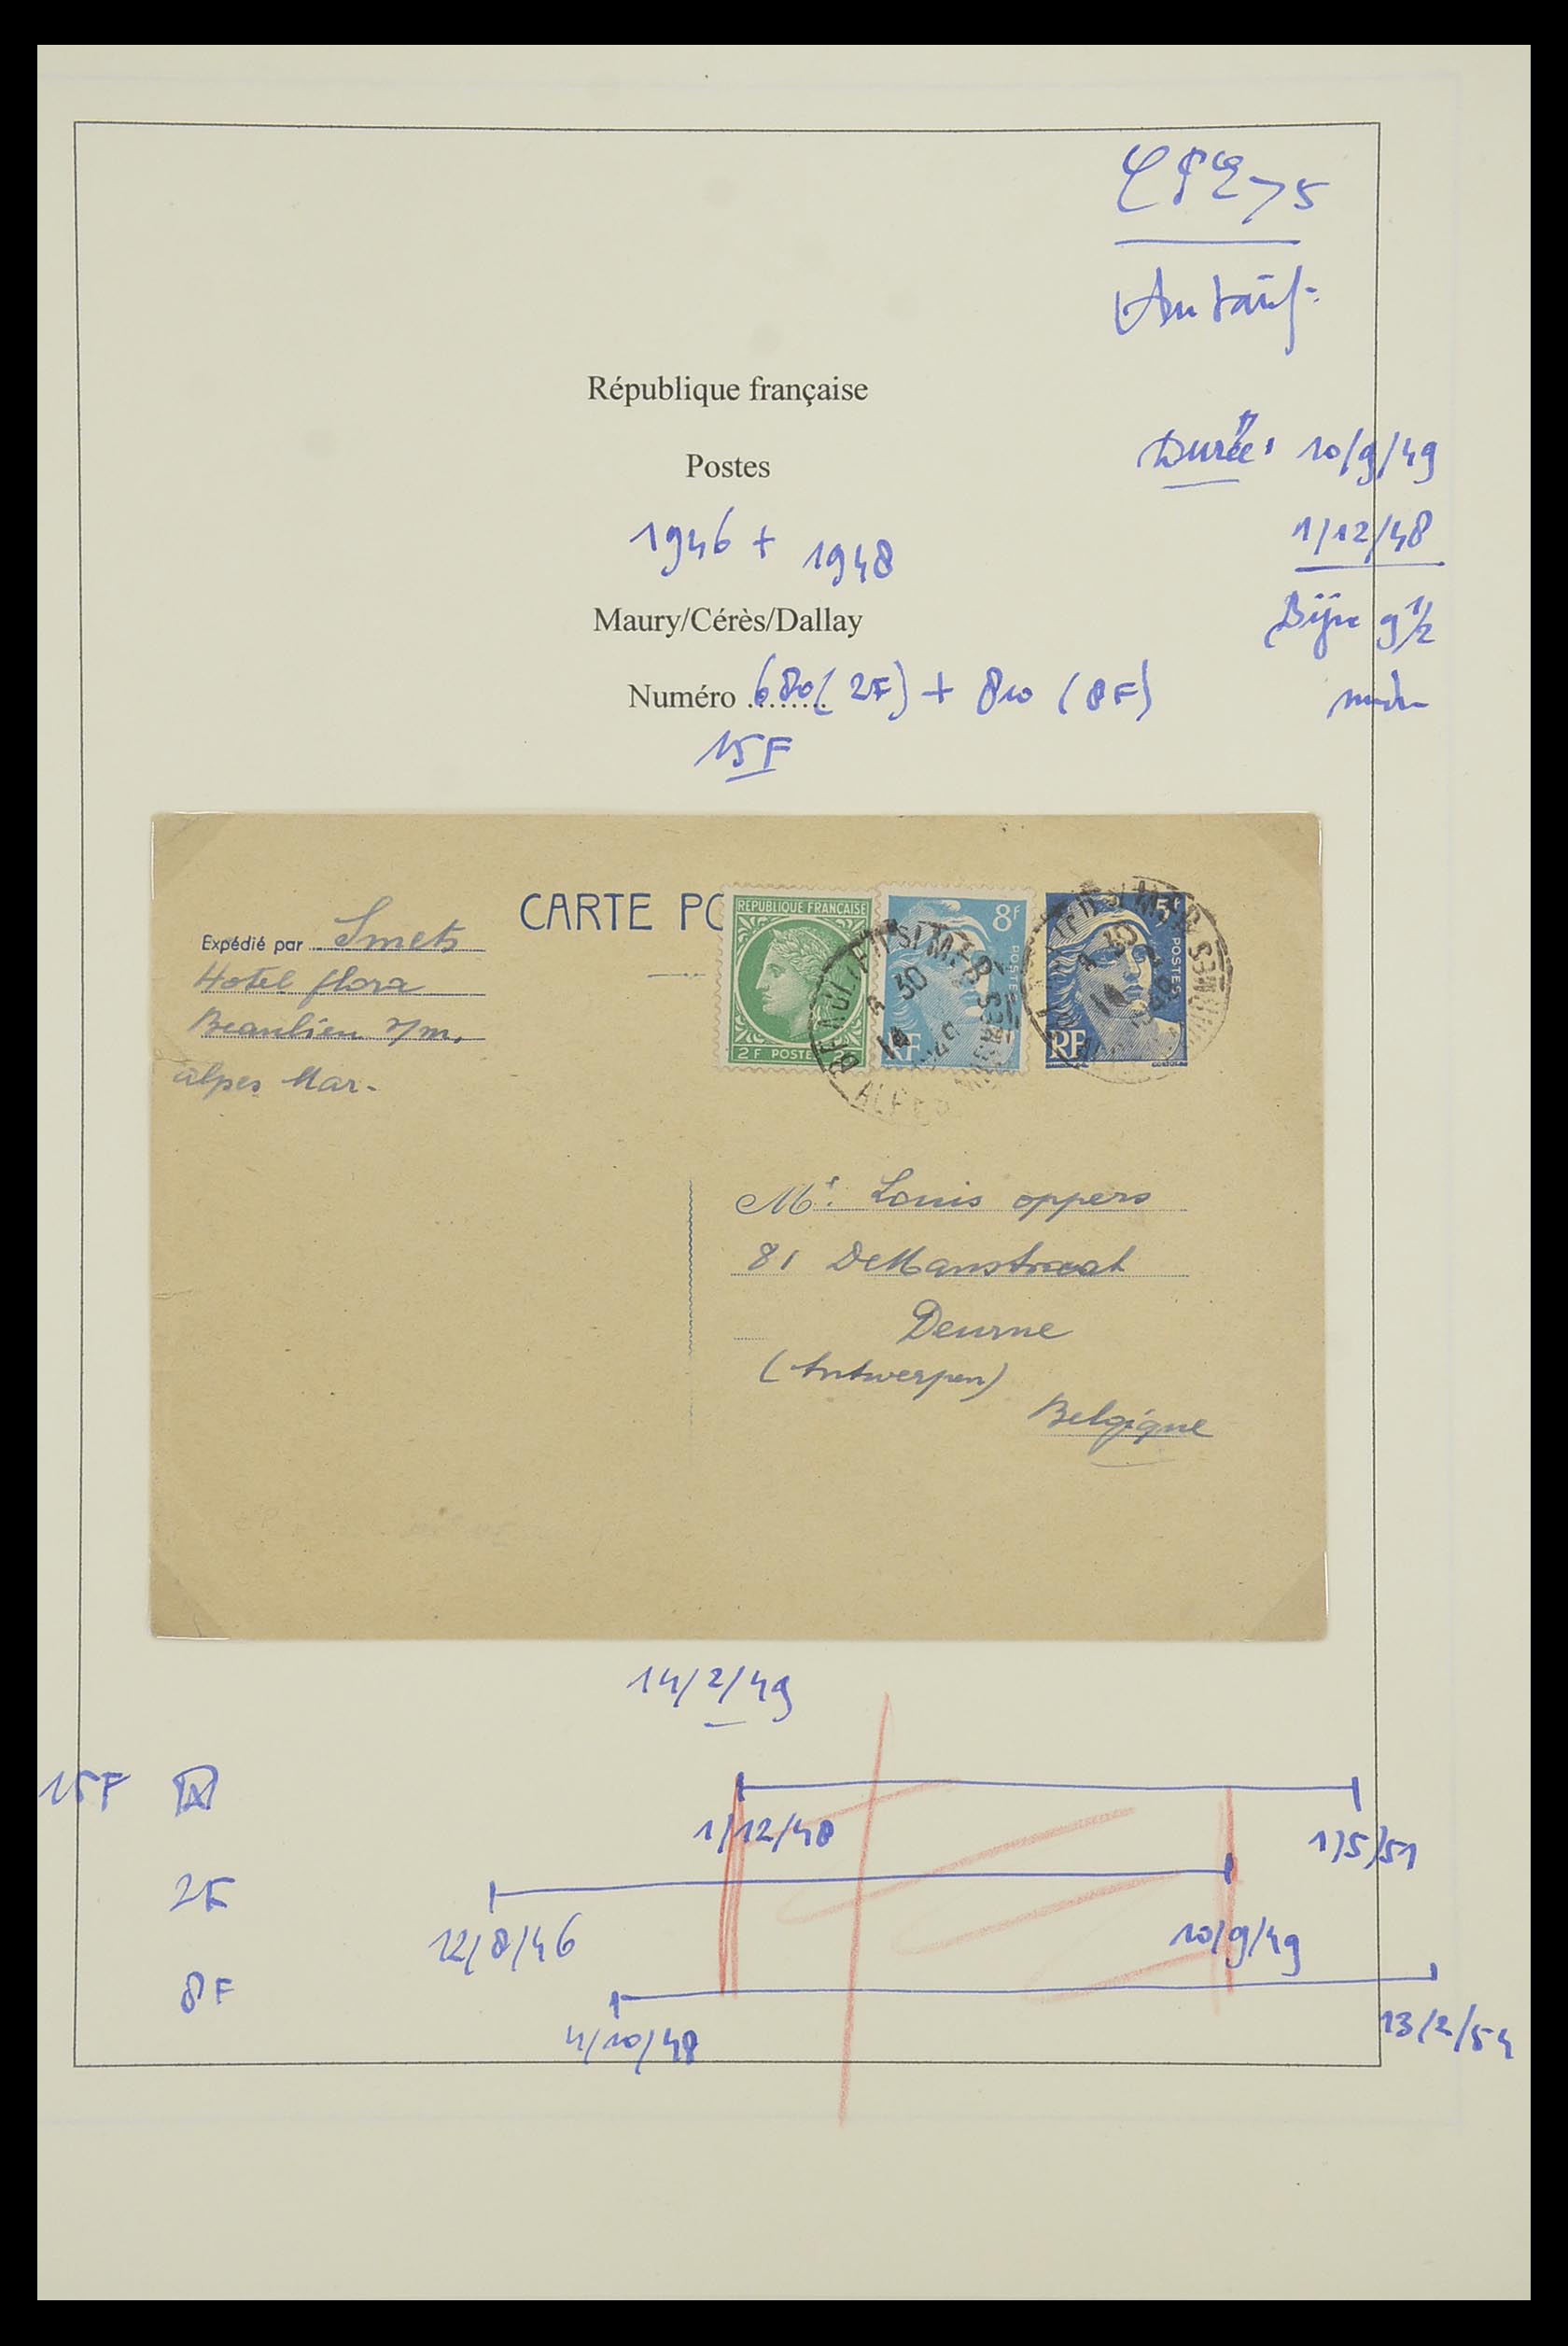 75
Au tarif
République française
Durée: 10/9/49
Postes
1/12/48
1946 + 1948
Maury/Cérès/Dallay
9 1/2
Numéro ........ 680 (2F) + 810 (8F)
15F
CARTE PO
REPUBLIQUE FRANÇAISE
2F POSTES 2F
8F
POSTES
RF
5F
POSTES
RF
Expédié par Smets
Hotel flora
Beaulieu s/m,
alpes Mar-
BEAULIEU S/MER
ALPES MARITIMES
4 30
14
2
49
Mr. Louis oppers
81
Deurne
(Antwerpen)
Belgique
14/2/49
15F
1/12/48
1/5/51
2F
12/8/46
10/9/49
8F
4/10/48
13/2/54